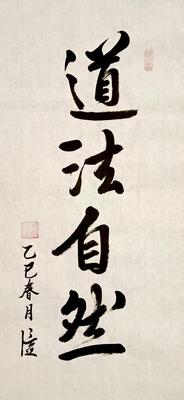 道法自然
乙巳春月